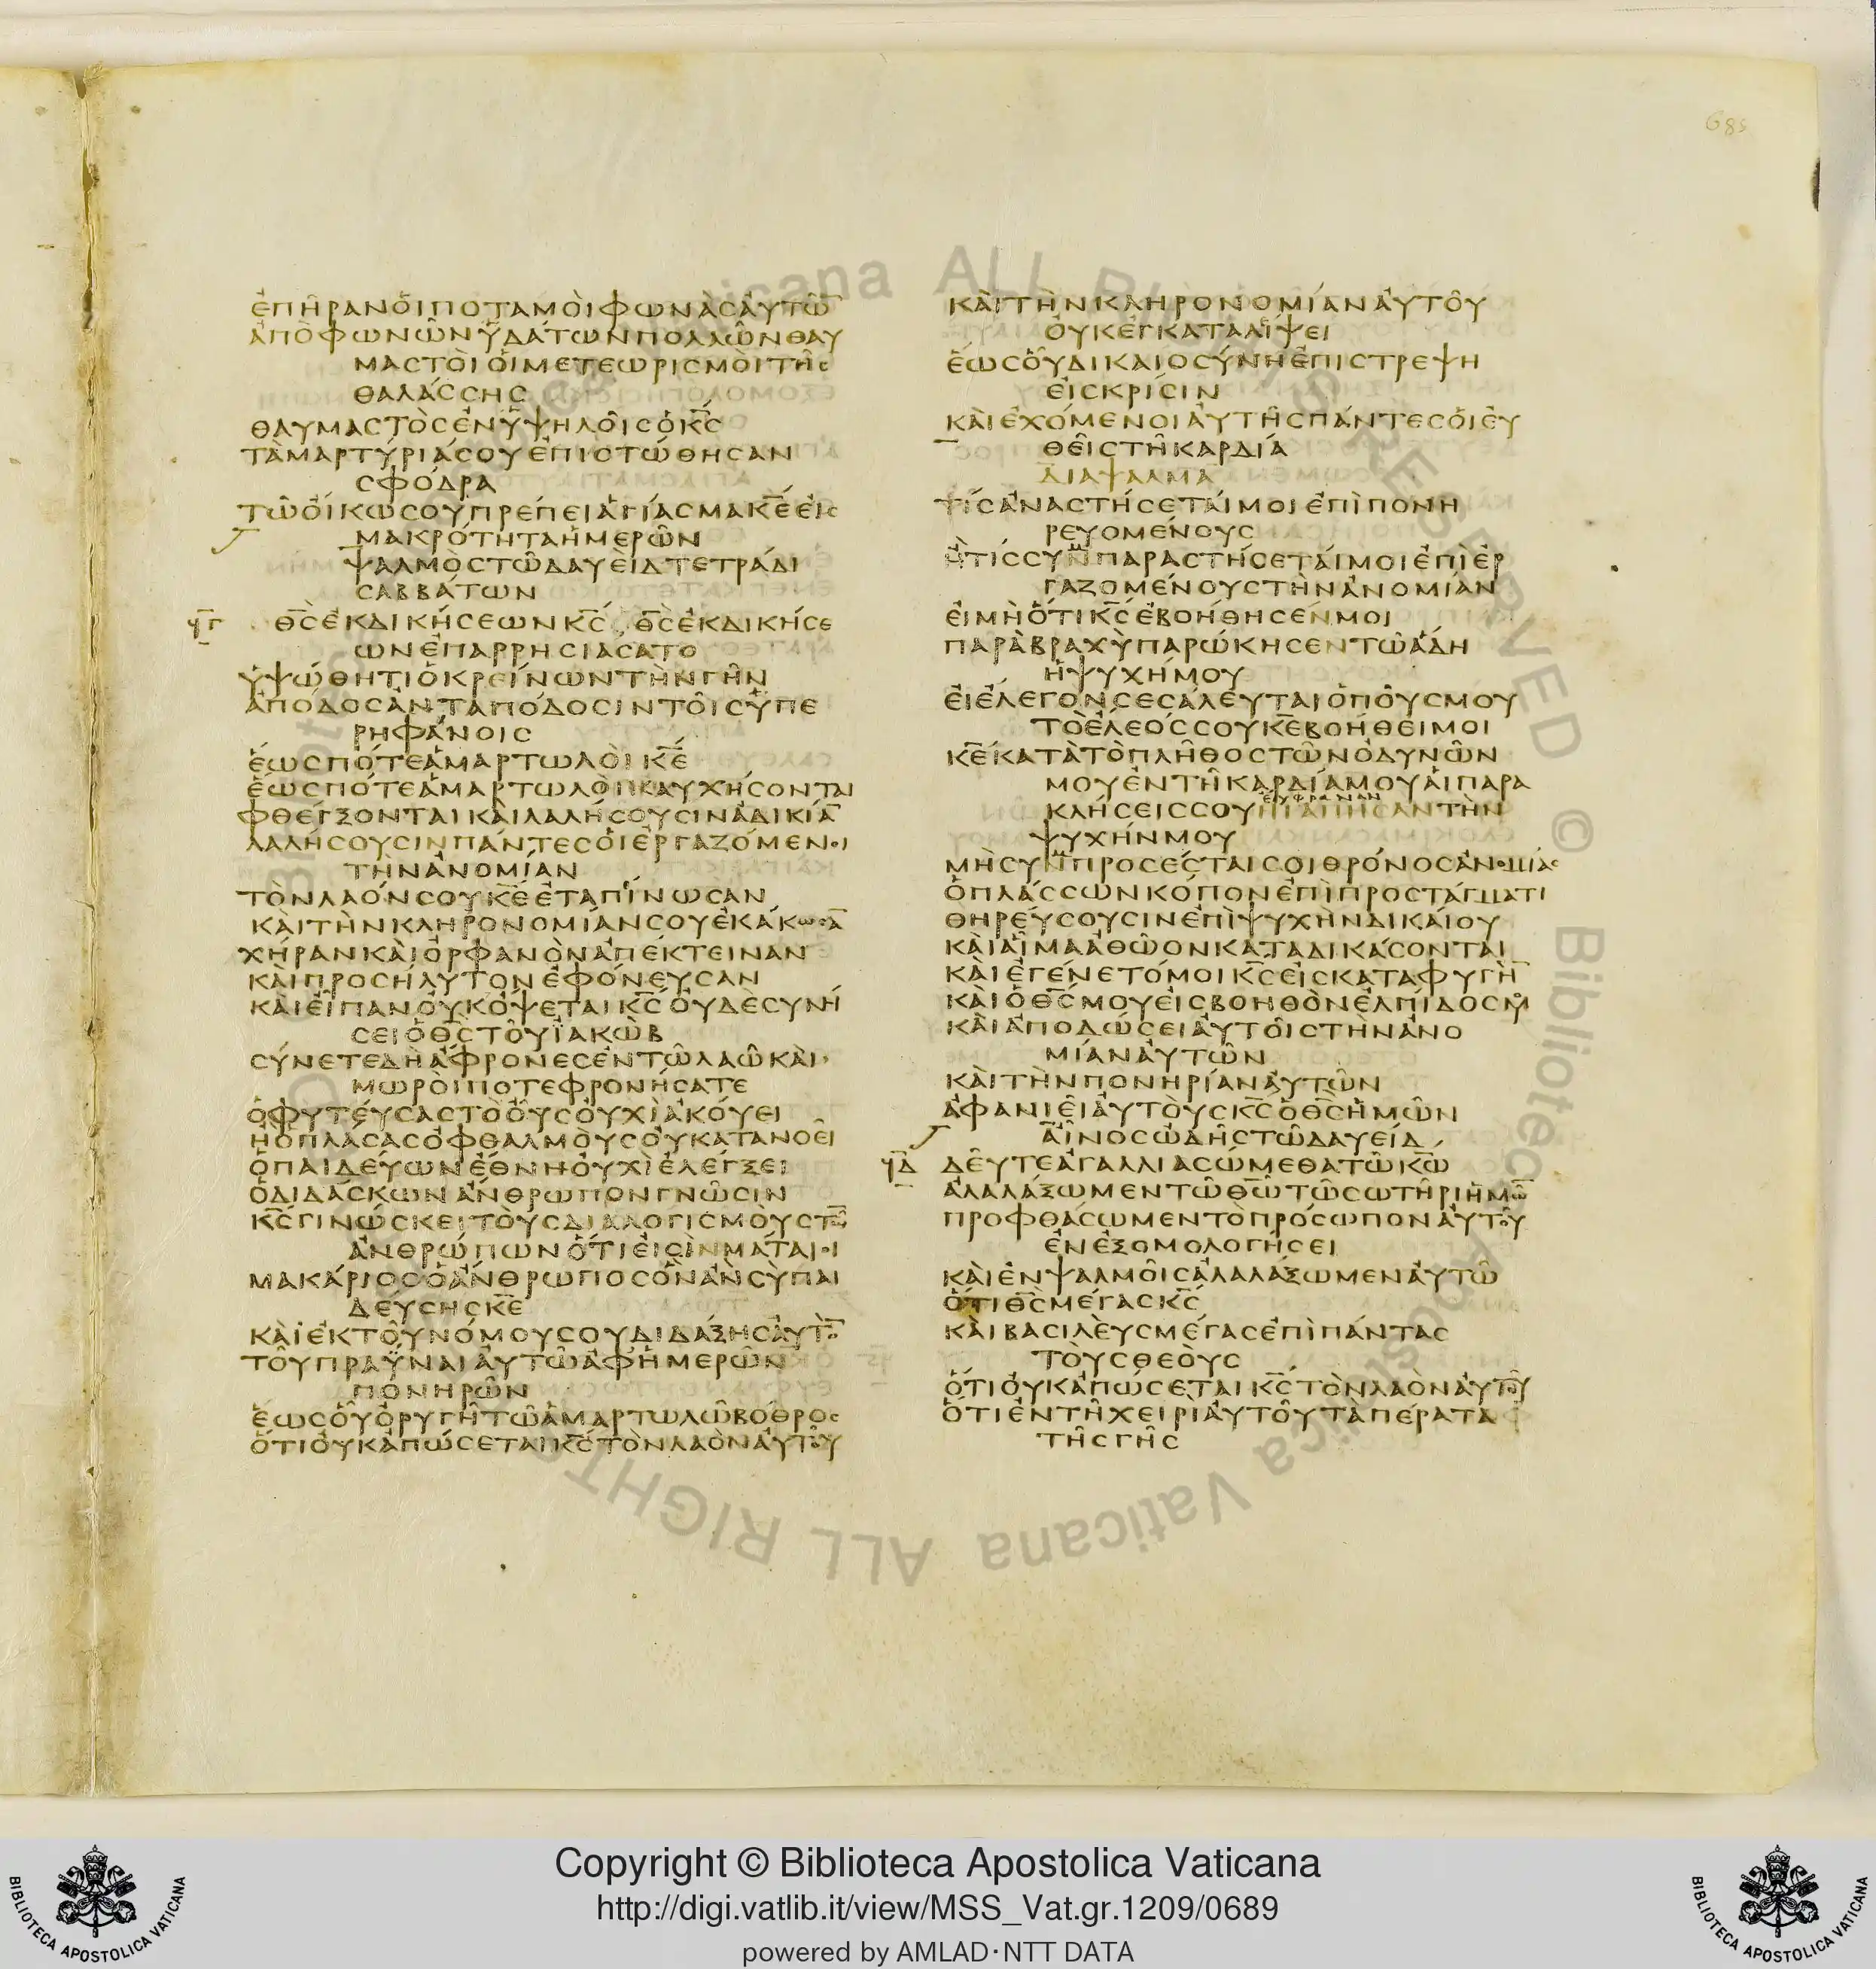 685
ἐπῆρανὁιποταμὸιφωνὰςἀυτῶ̅
ἀπὸφωνῶνὑδάτωνπολλῶνθαυ
μαστὸιὁιμετεωρισμὸιτῆς
θαλάσσης
θαυμαστὸςἐνὑψηλοῖςὁκ̅ς̅
τὰμαρτύριάσουἐπιστώθησαν
σφόδρα
τῶὄικωσουπρέπειἁγίασμακ̅ε̅ἐις
μακρότηταἡμερῶν
ψαλμὸςτῶδαυεὶδτετράδι
σαββάτων
ϟγ θ̅ς̅ἐκδικήσεωνκ̅ς̅ θ̅ς̅ἐκδικήσε
ωνἐπαρρησιάσατο
ὑψώθητιὁκρείνωντὴνγῆν
ἀπόδοςἀνταπόδοσιντοῖςὑπε
ρηφάνοις
ἕωςπότεἁμαρτωλὸικ̅ε̅
ἕωςπότεἁμαρτωλὸικαυχήσονται
φθέγξονταικὰιλαλήσουσινἀδικία̅
λαλήσουσινπάντεςὁιἐργαζόμενοι
τὴνἀνομίαν
τὸνλαόνσουκ̅ε̅ἐταπίνωσαν
κὰιτὴνκληρονομίανσουἐκάκωσα̅
χήρανκὰιὀρφανὸνἀπέκτειναν
κὰιπροσήλυτονἐφόνευσαν
κὰιἐῖπανὀυκὄψεταικ̅ς̅ὀυδὲσυνή
σειὁθ̅ς̅τοῦϊακὼβ
σύνετεδὴἄφρονεςἐντῶλαῶκὰι
μωρὸιποτεφρονήσατε
ὁφυτέυσαςτὸὀῦςὀυχὶἀκόυει
ἠὁπλάσαςὀφθαλμὸυςὀυκατανοεῖ
ὁπαιδέυωνἔθνηὀυχὶἐλέγξει
ὁδιδάσκωνἄνθρωπονγνῶσιν
κ̅ς̅γινώσκειτὸυςδιαλογισμὸυςτῶ̅
ἀνθρώπωνὅτιἐισὶνμάταιοι
μακάριοςὁἄνθρωποςὃνἂνσὺπαι
δέυσηςκ̅ε̅
κὰιἐκτοῦνόμουσουδιδάξηςἀυτὸ̅
τοῦπραῧναιἀυτῶἀφἡμερῶν
πονηρῶν
ἕωςὁῦὀρυγῆτῶἁμαρτωλῶβόθρος
ὅτιὀυκἀπώσεταικ̅ς̅τὸνλαὸνἀυτοῦ
κὰιτὴνκληρονομίανἀυτοῦ
ὀυκἐγκαταλείψει
ἕωςὁῦδικαιοσύνηἐπιστρέψη
ἐιςκρίσιν
κὰιἐχόμενοιἀυτῆςπάντεςὁιἐυ
θεῖςτῆκαρδία
διάψαλμα
τίςἀναστήσεταίμοιἐπὶπονη
ρευομένους
ἢτίςσυμπαραστήσεταίμοιἐπὶἐρ
γαζομένουςτὴνἀνομίαν
ἐιμὴὅτικ̅ς̅ἐβοήθησένμοι
παρὰβραχὺπαρώκησεντῶἅδη
ἡψυχήμου
ἐιἔλεγονσεσάλευταιὁπόυςμου
τὸἔλεόςσουκ̅ε̅βοήθειμοι
κ̅ε̅κατὰτὸπλῆθοςτῶνὀδυνῶν
μουἐντῆκαρδίαμουἁιπαρα
ευφραναν
κλήσειςσουἠγάπησαντὴν
ψυχήνμου
μὴσυμπροσέσταισοιθρόνοςἀνομίας
ὁπλάσσωνκόπονἐπὶπροστάγματι
θηρέυσουσινἐπὶψυχὴνδικαίου
κὰιἁῖμαἀθῶονκαταδικάσονται
κὰιἐγένετόμοικ̅ς̅ἐιςκαταφυγὴ̅
κὰιὁθ̅ς̅μουἐιςβοηθὸνἐλπίδοςμου
κὰιἀποδώσειἀυτοῖςτὴνἀνο
μίανἀυτῶν
κὰιτὴνπονηρίανἀυτῶν
ἀφανιεῖἀυτὸυςκ̅ς̅ὁθ̅ς̅ἡμῶν
ἀῖνοςὠδῆςτῶδαυείδ
ϟδ δεῦτεἀγαλλιασώμεθατῶκ̅ω̅
ἀλαλάξωμεντῶθ̅ω̅τῶσωτῆριἡμῶ̅
προφθάσωμεντὸπρόσωπονἀυτοῦ
ἐνἐξομολογήσει
κὰιἐνψαλμοῖςἀλαλάξωμενἀυτῶ
ὅτιθ̅ς̅μέγαςκ̅ς̅
κὰιβασιλὲυςμέγαςἐπὶπάντας
τὸυςθεὸυς
ὅτιὀυκἀπώσεταικ̅ς̅τὸνλαὸνἀυτοῦ
ὅτιἐντῆχειρὶἀυτοῦτὰπέρατα
τῆςγῆς
Copyright © Biblioteca Apostolica Vaticana
http://digi.vatlib.it/view/MSS_Vat.gr.1209/0689
powered by AMLAD·NTT DATA
BIBLIOTECA APOSTOLICA VATICANA
BIBLIOTECA APOSTOLICA VATICANA